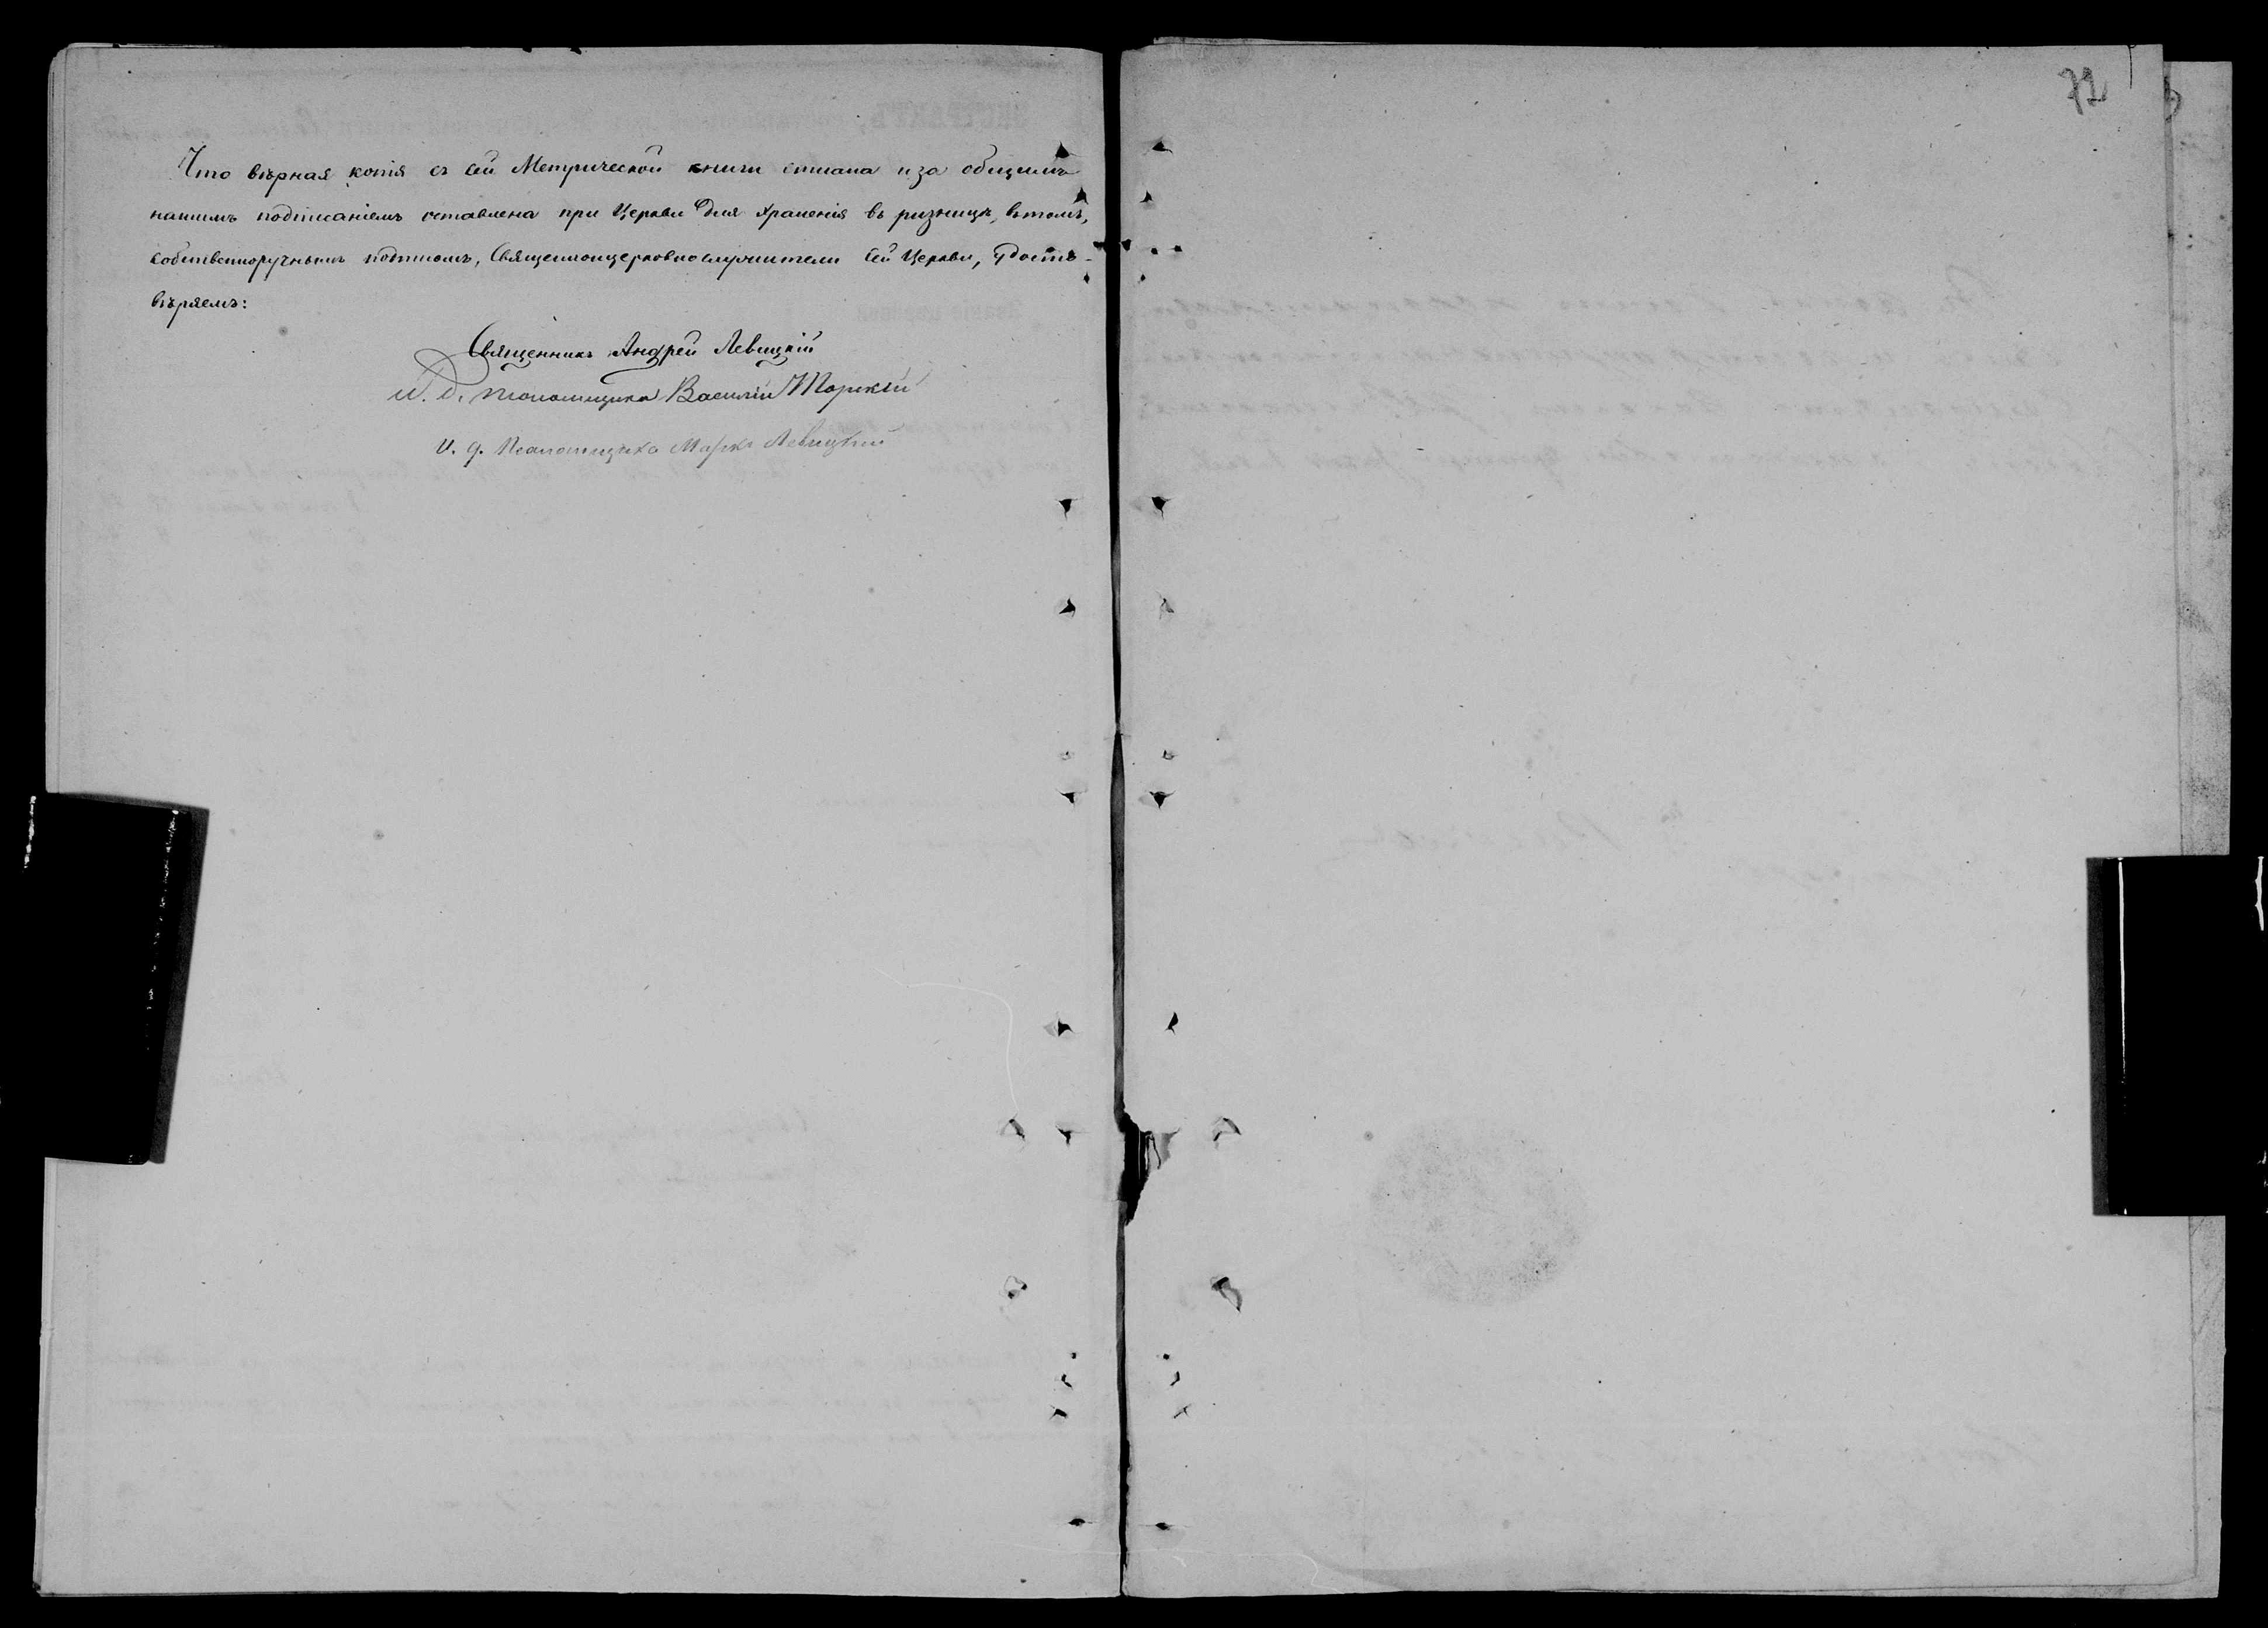 Что вѣрная копія съ сей Метрической книги списана и за общимъ
нашимъ подписаніемъ оставлена при Церкви для храненія въ ризницѣ, въ томъ,
собственноручнымъ подписомъ, Священноицерковнослужители сей Церкви, удосто-
вѣряемъ:
Священникъ Андрей Левицкій
И. д. псаломщика Василій Торскій
И. д. Псаломщика Маркъ Левицкій
72